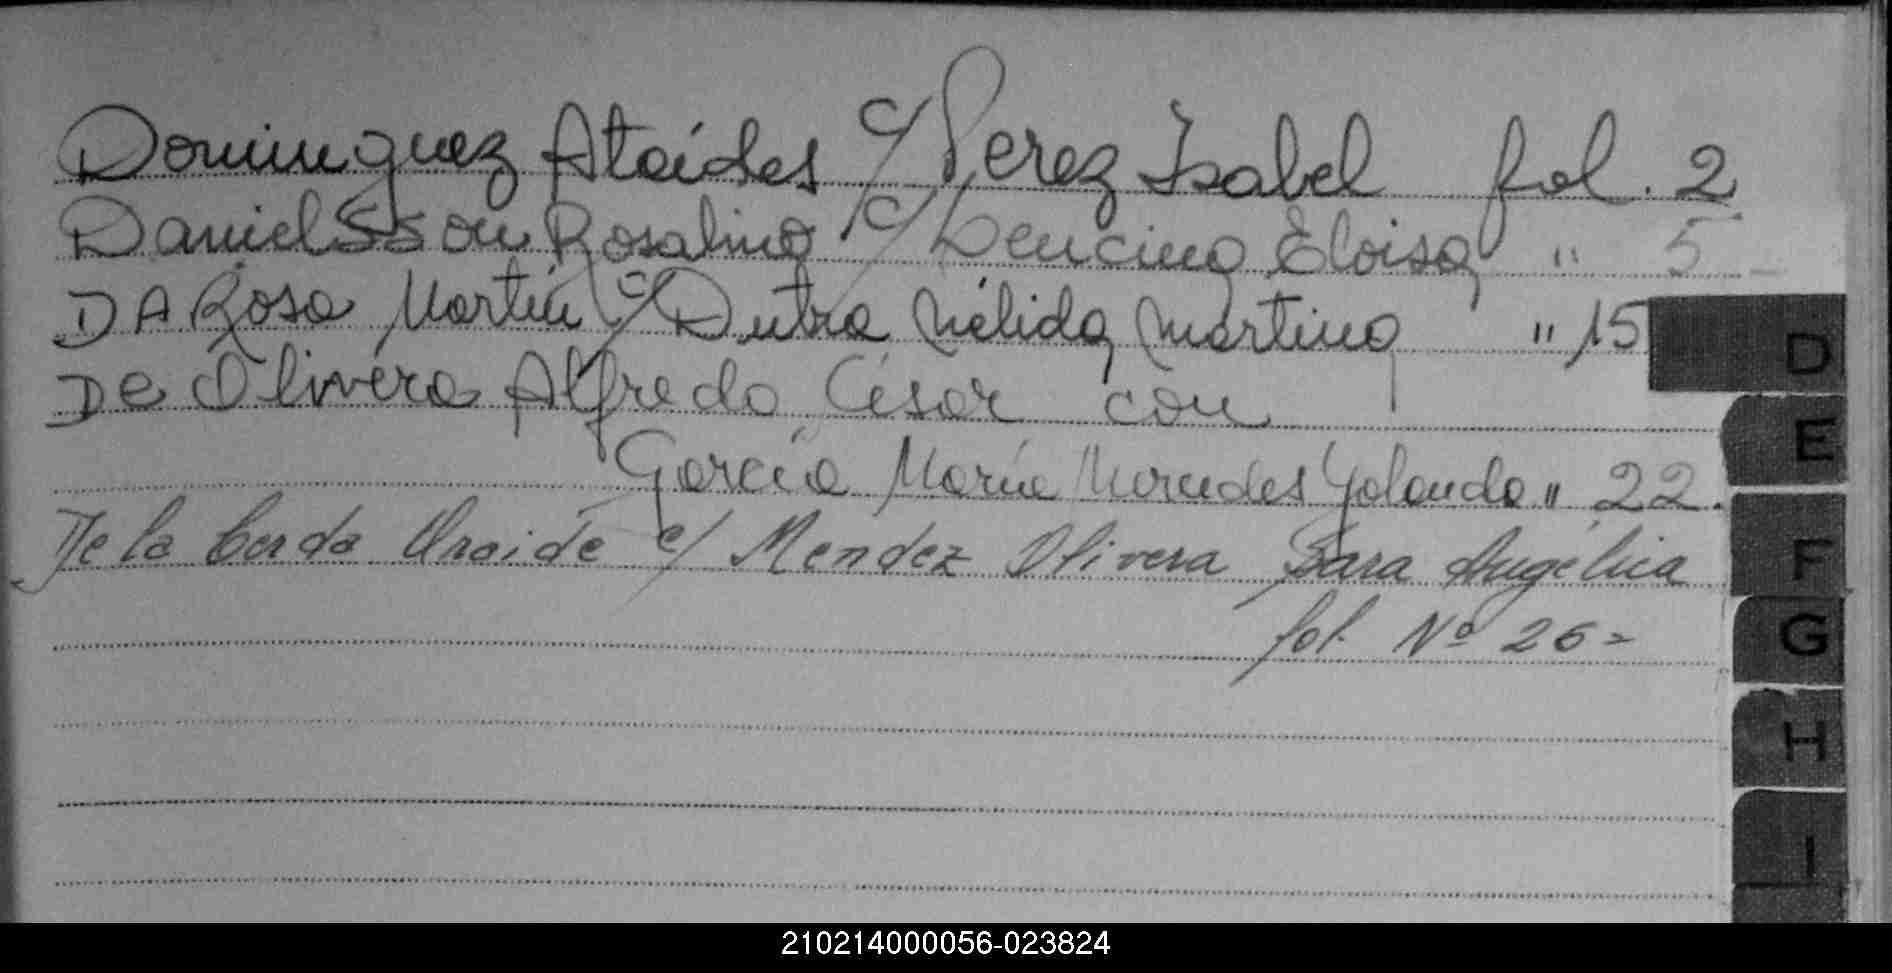 Dominguez Ataídes c/ Perez Isabel fol. 2
Danielsson Rosalino c/ Dencina Eloisa " 5
DA Rosa Martín c/ Dutra Nélida Martina " 15
De Olivera Alfredo César con
García María Mercedes Yolanda " 22.
De la Cerda Uraide c/ Mendez Olivera Sara Angélica
fol. Nº 26=
D
E
F
G
H
I
210214000056-023824